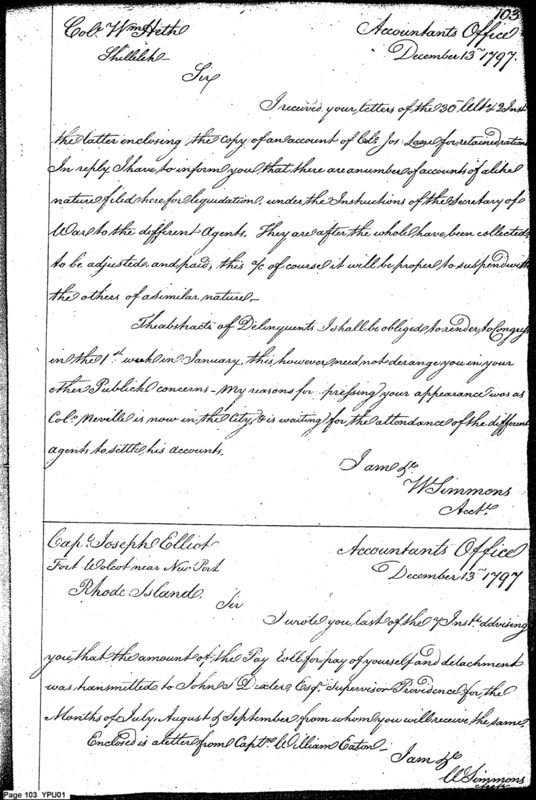 103
Colo. Wm Heth
Shillelah
Accountants Office
December 13th 1797.
Sir
I received your letters of the 30th Ulto & 2 Inst
the latter enclosing the copy of an account of Colo. Jos: Lane for retained rations
In reply I have to inform you that there are a number of accounts of a like
nature filed here for liquidation, under the Instructions of the Secretary of
War to the different Agents. They are after the whole have been collected,
to be adjusted and paid, this a/c of course it will be proper to suspend with
the others of a similar nature—
The abstracts of Delinquents I shall be obliged to render to Congress
in the 1st week in January, this however need not derange you in your
other Publick concerns— My reasons for pressing your appearance was as
Colo. Neville is now in the City, & is waiting for the attendance of the different
agents to settle his accounts.
I am &c
Wm Simmons
Acctt.
Capt. Joseph Elliot
Fort Wolcot near New Port
Rhode Island.
Accountants Office
December 13th 1797
Sir
I wrote you last of the 7 Inst. advising
you, that the amount of the Pay Roll for pay of yourself and detachment
was transmitted to John S Dexter, Esqr. Supervisor Providence for the
Months of July, August & September from whom you will receive the same.
Enclosed is a letter from Captn. William Eaton—
I am &c
Wm Simmons
Page 103 YPU01